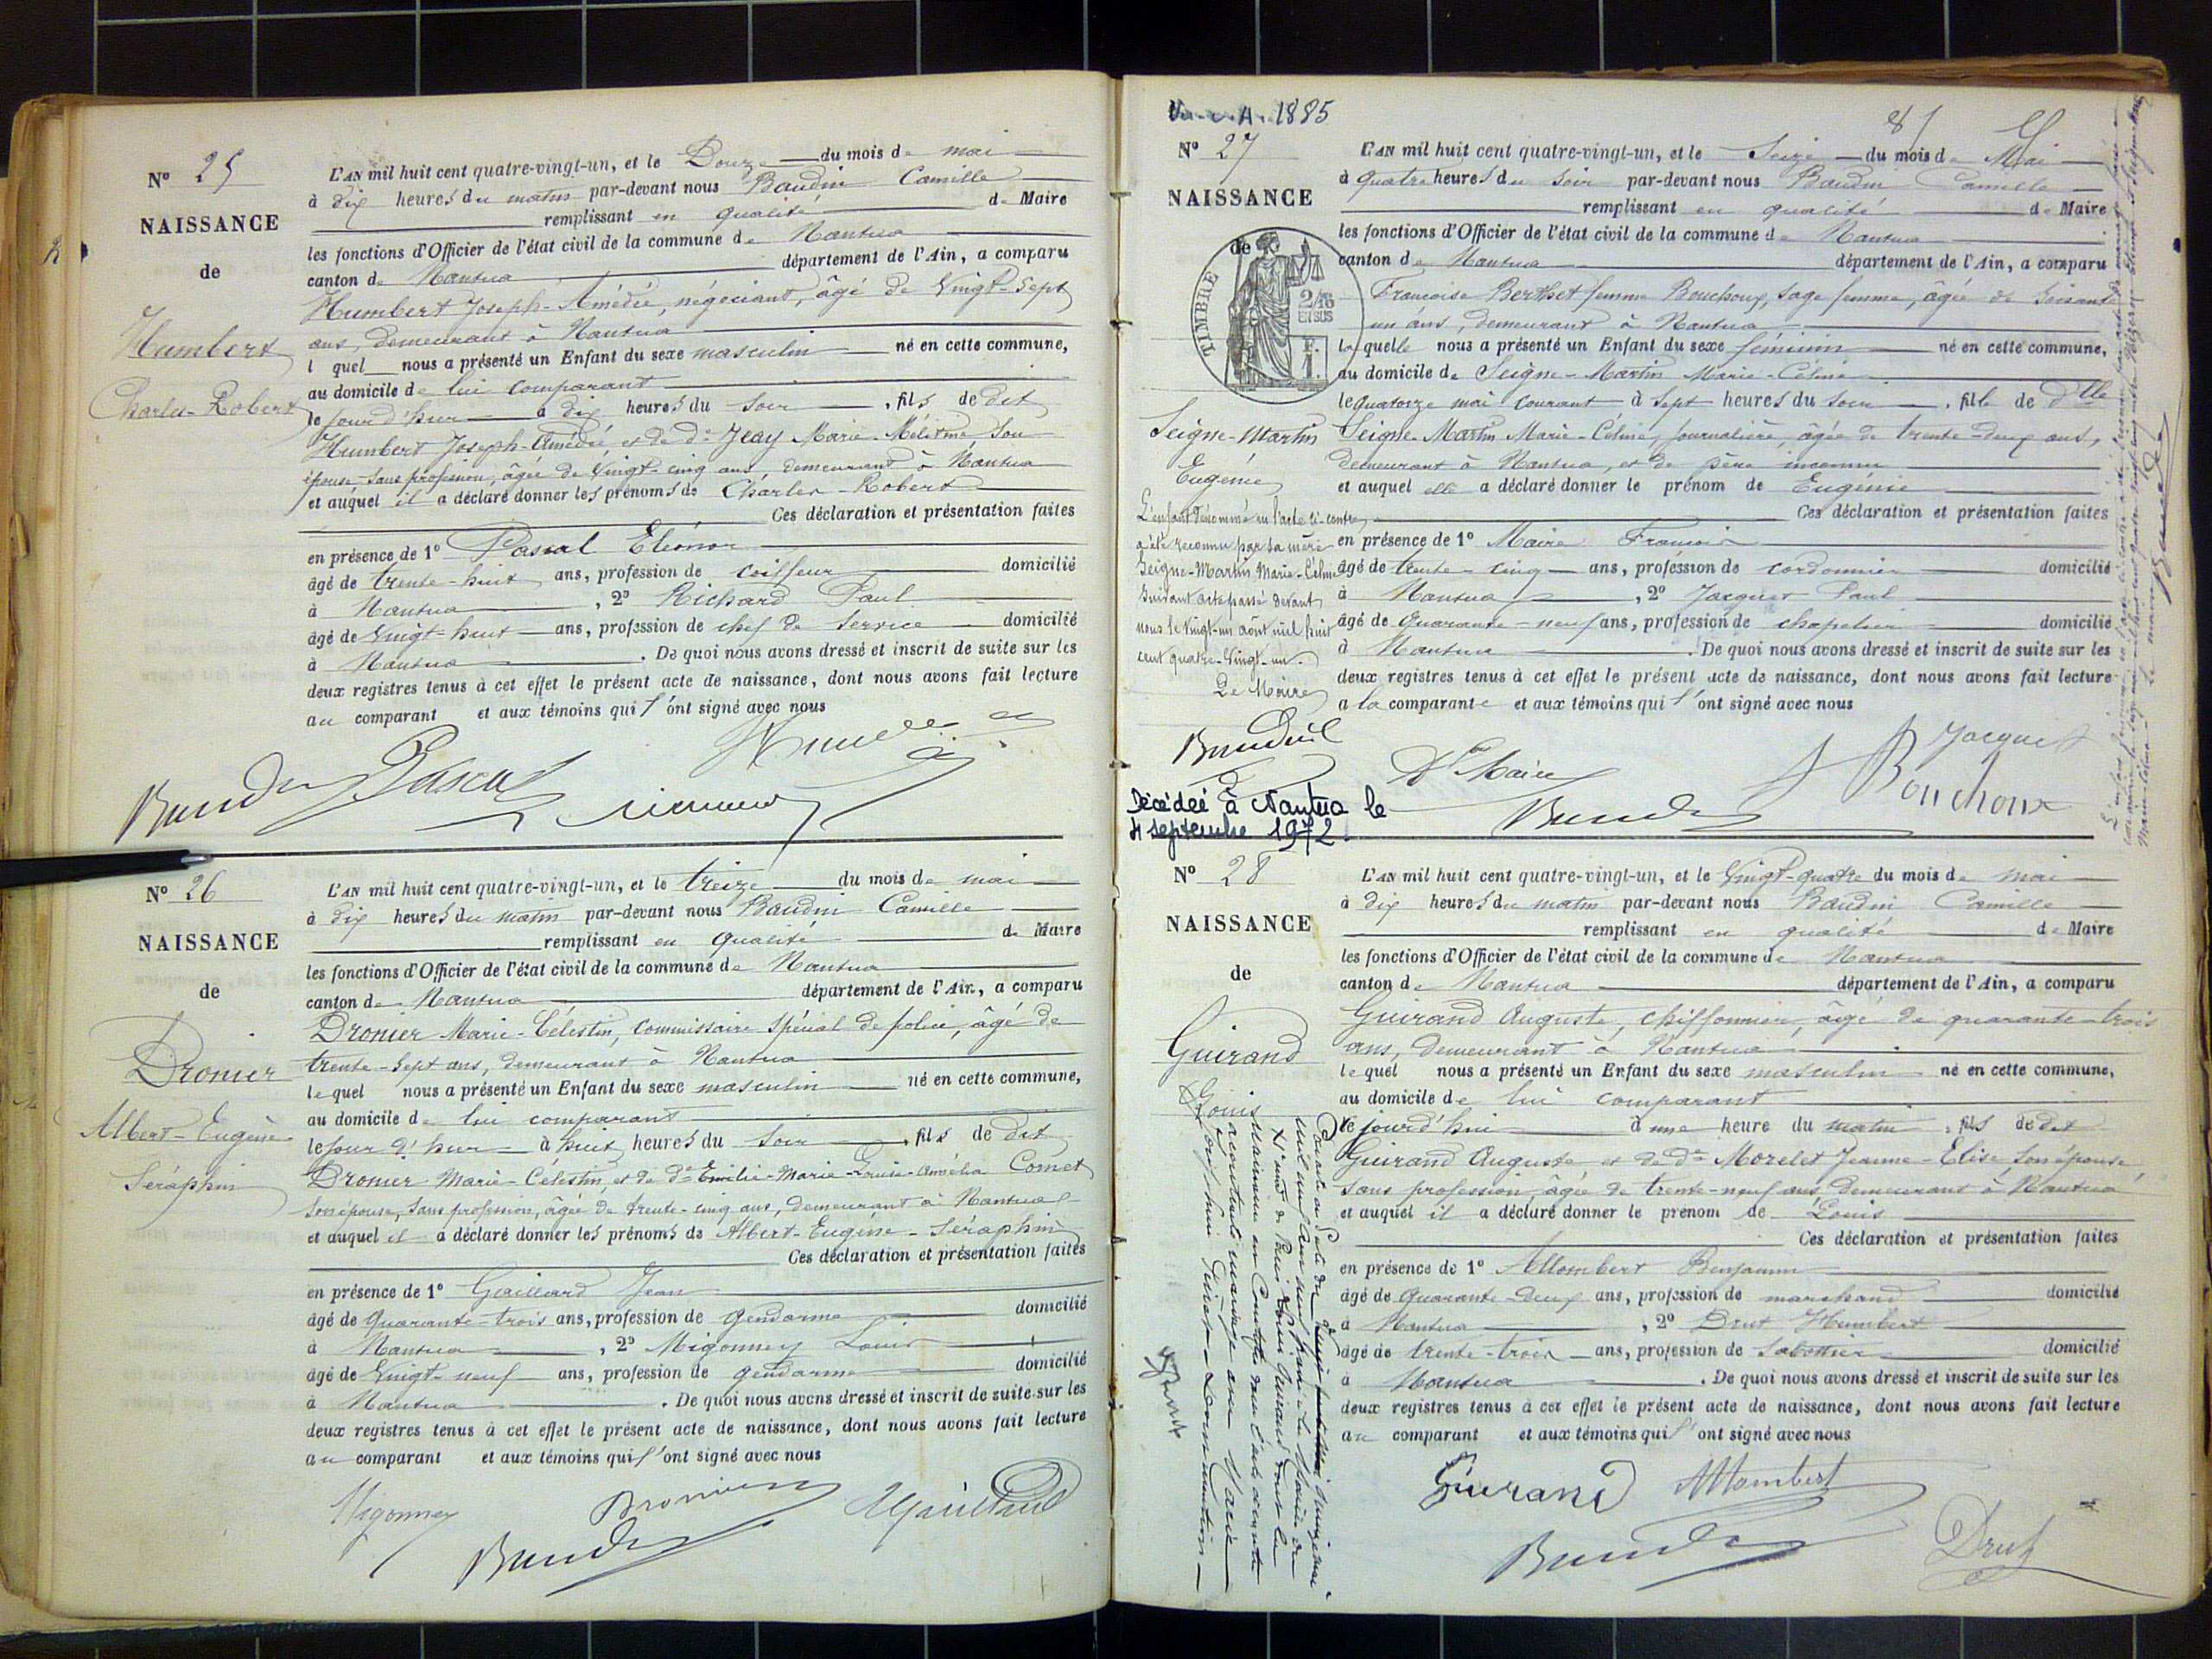 N° 25
NAISSANCE
de
Humbert
Charles-Robert
L'AN mil huit cent quatre-vingt-un, et le Douze du mois de mai
à dix heures du matin par-devant nous Baudin Camille
remplissant en qualité de Maire
les fonctions d'Officier de l'état civil de la commune de Nantua
canton de Nantua département de l'Ain, a comparu
Humbert Joseph-Amédée, négociant, âgé de Vingt-Sept
ans, demeurant à Nantua
l quel nous a présenté un Enfant du sexe masculin né en cette commune,
au domicile de lui comparant
le jour d'hier à dix heures du soir, fils de dit
Humbert Joseph-Amédée, et de de Jeay Marie Son
épouse sans profession, âgée de Vingt-cinq ans, demeurant à Nantua
et auquel il a déclaré donner les prénoms de Charles-Robert
Ces déclaration et présentation faites
en présence de 1° Pascal Eléonor
âgé de trente-huit ans, profession de coiffeur domicilié
à Nantua, 2° Richard Paul
âgé de Vingt-huit ans, profession de chef de service domicilié
à Nantua. De quoi nous avons dressé et inscrit de suite sur les
deux registres tenus à cet effet le présent acte de naissance, dont nous avons fait lecture
au comparant et aux témoins qui l'ont signé avec nous
Pascal
N° 26
NAISSANCE
de
Dronier
Albert-Eugène
Séraphin
L'AN mil huit cent quatre-vingt-un, et le treize du mois de mai
à dix heures du matin par-devant nous Baudin Camille
remplissant en qualité de Maire
les fonctions d'Officier de l'état civil de la commune de Nantua
canton de Nantua département de l'Ain, a comparu
Dronier Marie-Célestin, Commissaire Spécial de police, âgé de
trente-sept ans, demeurant à Nantua
lequel nous a présenté un Enfant du sexe masculin né en cette commune,
au domicile de lui comparant
le jour d'hier à huit heures du soir, fils de dit
Dronier Marie-Célestin, et de de Emilie-Marie-Louise-Amélia Comet
Son épouse, sans profession, âgée de trente-cinq ans, demeurant à Nantua
et auquel il a déclaré donner les prénoms de Albert-Eugène-Séraphin
Ces déclaration et présentation faites
en présence de 1° Gaillard Jean
âgé de Quarante-trois ans, profession de gendarme domicilié
à Nantua, 2° Migonney Louis
âgé de Vingt-neuf ans, profession de gendarme domicilié
à Nantua. De quoi nous avons dressé et inscrit de suite sur les
deux registres tenus à cet effet le présent acte de naissance, dont nous avons fait lecture
au comparant et aux témoins qui l'ont signé avec nous
Migonney Dronier
1885
N° 27
NAISSANCE
de
TIMBRE
2/10
EN SUS
F.
1.
Seigne-Martin
Eugénie
L'enfant dénommé en l'acte ci-contre
a été reconnu par sa mère
Seigne-Martin Marie-Céline
suivant acte passé devant
nous le Vingt-un août mil huit
cent quatre-Vingt-un.
Le Maire
Décédée à Nantua le
4 septembre 1972.
L'AN mil huit cent quatre-vingt-un, et le Seize du mois de Mai
à quatre heures du soir par-devant nous Baudin Camille
remplissant en qualité de Maire
les fonctions d'Officier de l'état civil de la commune de Nantua
canton de Nantua département de l'Ain, a comparu
Francoise Berthet femme Bouchoux, Sage femme, âgée de Soixante
un ans, demeurant à Nantua
laquelle nous a présenté un Enfant du sexe féminin né en cette commune,
au domicile de Seigne-Martin Marie-Céline
le quatorze mai courant à Sept heures du soir, fille de Dlle
Seigne-Martin Marie-Céline, journalière, âgée de trente-deux ans,
demeurant à Nantua, et de père inconnu
et auquel elle a déclaré donner le prénom de Eugénie
Ces déclaration et présentation faites
en présence de 1° Maire Francois
âgé de trente-cinq ans, profession de cordonnier domicilié
à Nantua, 2° Jacquet Paul
âgé de Quarante-neuf ans, profession de chapelier domicilié
à Nantua. De quoi nous avons dressé et inscrit de suite sur les
deux registres tenus à cet effet le présent acte de naissance, dont nous avons fait lecture
a la comparante et aux témoins qui l'ont signé avec nous
Jacquet
Maire
Bouchoux
N° 28
NAISSANCE
de
Guirand
Louis
L'AN mil huit cent quatre-vingt-un, et le Vingt-quatre du mois de mai
à dix heures du matin par-devant nous Baudin Camille
remplissant en qualité de Maire
les fonctions d'Officier de l'état civil de la commune de Nantua
canton de Nantua département de l'Ain, a comparu
Guirand Auguste, chiffonnier, âgé de quarante-trois
ans, demeurant à Nantua
lequel nous a présenté un Enfant du sexe masculin né en cette commune,
au domicile de lui comparant
ce jourd'hui à une heure du matin, fils de dit
Guirand Auguste et de de Morelet Jeanne-Elise, son épouse,
sans profession, âgée de trente-neuf ans, demeurant à Nantua
et auquel il a déclaré donner le prénom de Louis
Ces déclaration et présentation faites
en présence de 1° Allombert Benjamin
âgé de Quarante-deux ans, profession de marchand domicilié
à Nantua, 2° Drut Humbert
âgé de trente-trois ans, profession de Sabottier domicilié
à Nantua. De quoi nous avons dressé et inscrit de suite sur les
deux registres tenus à cet effet le présent acte de naissance, dont nous avons fait lecture
au comparant et aux témoins qui l'ont signé avec nous
Guirand Allombert
Drut